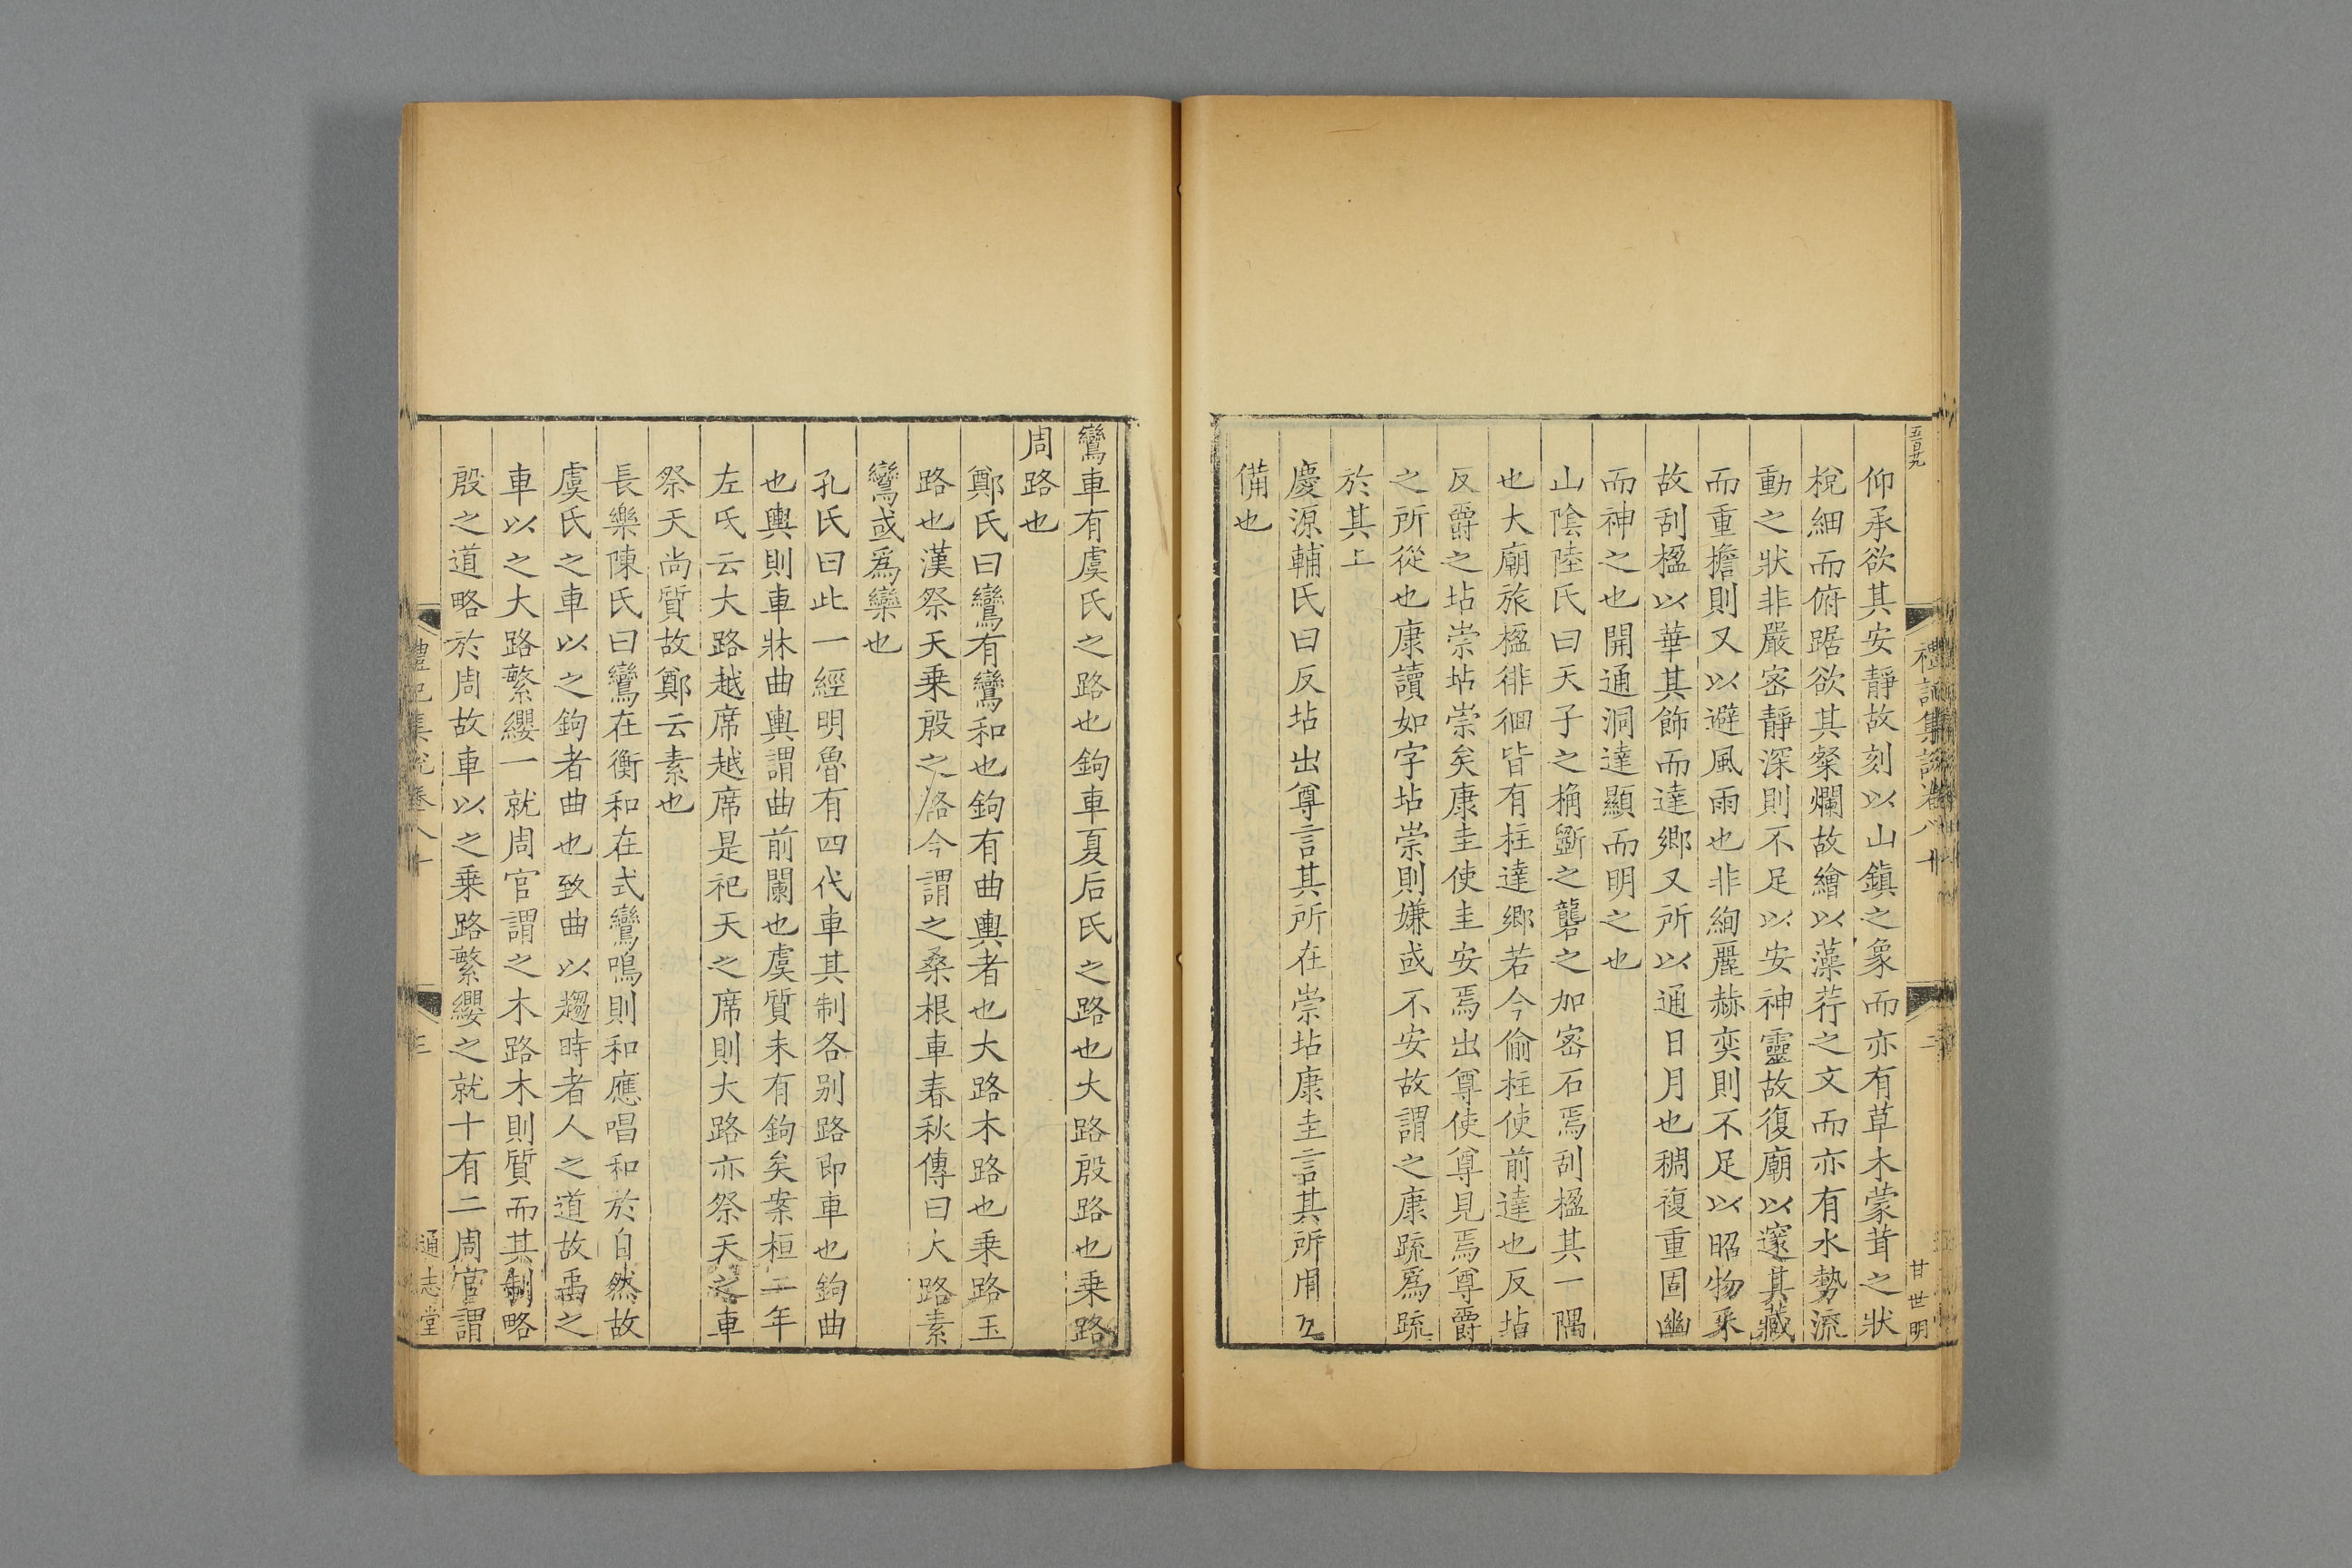 五百九
禮記集說卷八十
二
甘世明
仰承欲其安靜故刻以山鎮之象而亦有草木蒙茸之狀
梲細而俯踞欲其粲爛故繪以藻荇之文而亦有水勢流
動之狀非嚴宻靜深則不足以安神靈故復廟以邃其藏
而重擔則又以避風雨也非絢麗赫奕則不足以昭物采
故刮楹以華其飾而達鄉又所以通日月也稠複重固幽
而神之也開通洞達顯而明之也
山陰陸氏曰天子之桷斲之礱之加宻石焉刮楹其一隅
也大廟旅楹徘徊皆有柱達鄉若今偷柱使前達也反坫
反爵之坫崇坫崇矣康圭使圭安焉出尊使尊見焉尊爵
之所從也康讀如字坫崇則嫌或不安故謂之康䟽爲䟽
於其上
慶源輔氏曰反坫出尊言其所在崇坫康圭言其所用互
備也
鸞車有虞氏之路也鉤車夏后氏之路也大路殷路也乗路
周路也
鄭氏曰鸞有鸞和也鉤有曲輿者也大路木路也乗路玉
路也漢祭天乗殷之路今謂之桑根車春秋傳曰大路素
鸞或爲欒也
孔氏曰此一經明魯有四代車其制各别路即車也鉤曲
也輿則車牀曲輿謂曲前闌也虞質未有鉤矣案桓二年
左氏云大路越席越席是祀天之席則大路亦祭天之車
祭天尚質故鄭云素也
長樂陳氏曰鸞在衡和在式鸞鳴則和應唱和於自然故
虞氏之車以之鉤者曲也致曲以趨時者人之道故禹之
車以之大路繁纓一就周官謂之木路木則質而其制略
殷之道略於周故車以之乗路繁纓之就十有二周官謂
禮記集說卷八十
三
通志堂